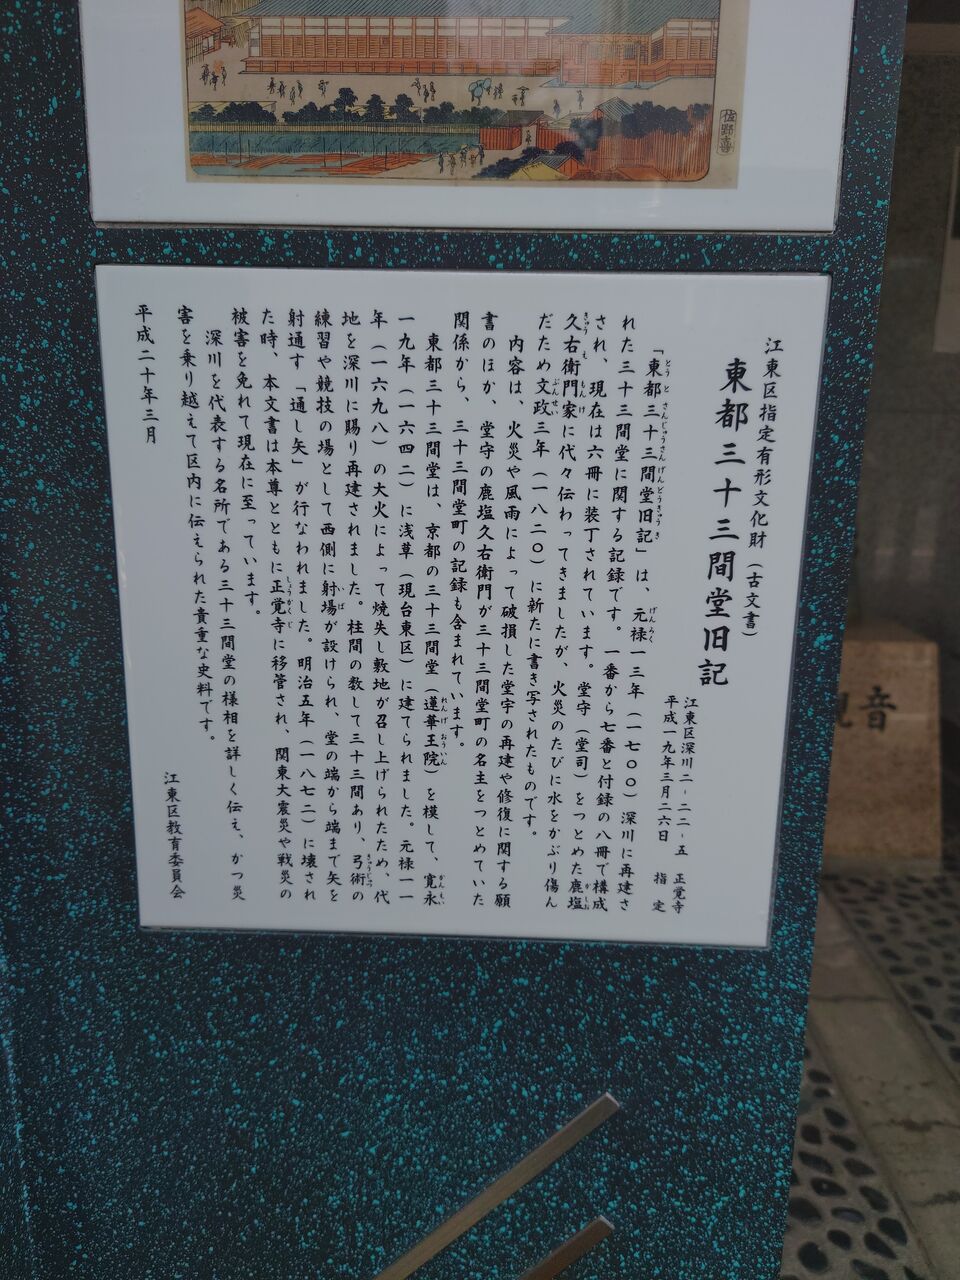 佐野喜
江東区指定有形文化財（古文書）
東都三十三間堂旧記
江東区深川二‐二二‐五　正覚寺
平成一九年三月二六日　指定
「東都三十三間堂旧記」は、元禄一三年（一七〇〇）深川に再建さ
れた三十三間堂に関する記録です。一番から七番と付録の八冊で構成
され、現在は六冊に装丁されています。堂守（堂司）をつとめた鹿塩
久右衛門家に代々伝わってきましたが、火災のたびに水をかぶり傷ん
だため文政三年（一八二〇）に新たに書き写されたものです。
内容は、火災や風雨によって破損した堂宇の再建や修復に関する願
書のほか、堂守の鹿塩久右衛門が三十三間堂町の名主をつとめていた
関係から、三十三間堂町の記録も含まれています。
東都三十三間堂は、京都の三十三間堂（蓮華王院）を模して、寛永
一九年（一六四二）に浅草（現台東区）に建てられました。元禄一一
年（一六九八）の大火によって焼失し敷地が召し上げられたため、代
地を深川に賜り再建されました。柱間の数して三十三間あり、弓術の
練習や競技の場として西側に射場が設けられ、堂の端から端まで矢を
射通す「通し矢」が行なわれました。明治五年（一八七二）に壊され
た時、本文書は本尊とともに正覚寺に移管され、関東大震災や戦災の
被害を免れて現在に至っています。
深川を代表する名所である三十三間堂の様相を詳しく伝え、かつ災
害を乗り越えて区内に伝えられた貴重な史料です。
平成二十年三月
江東区教育委員会
観音